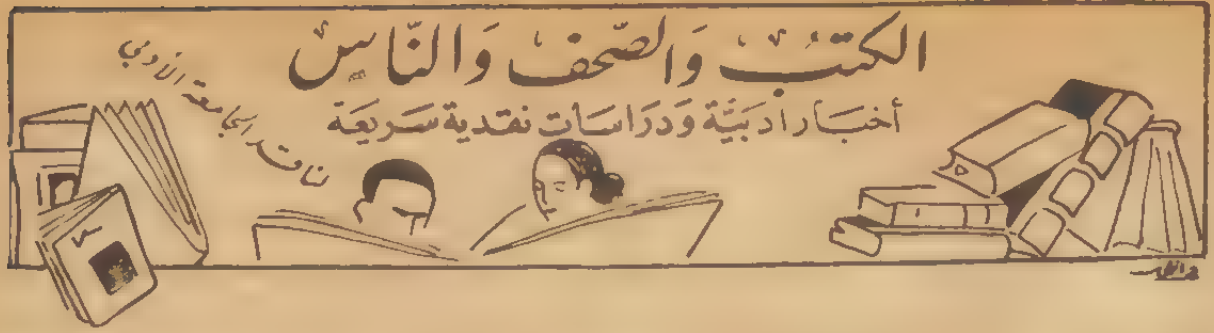 الكتبُ وَالصّحف وَالنّاس
أخبَار أدبيَّة وَدرَاسَات نقدية سَريعَة
لناقد الجامعة الأدبي